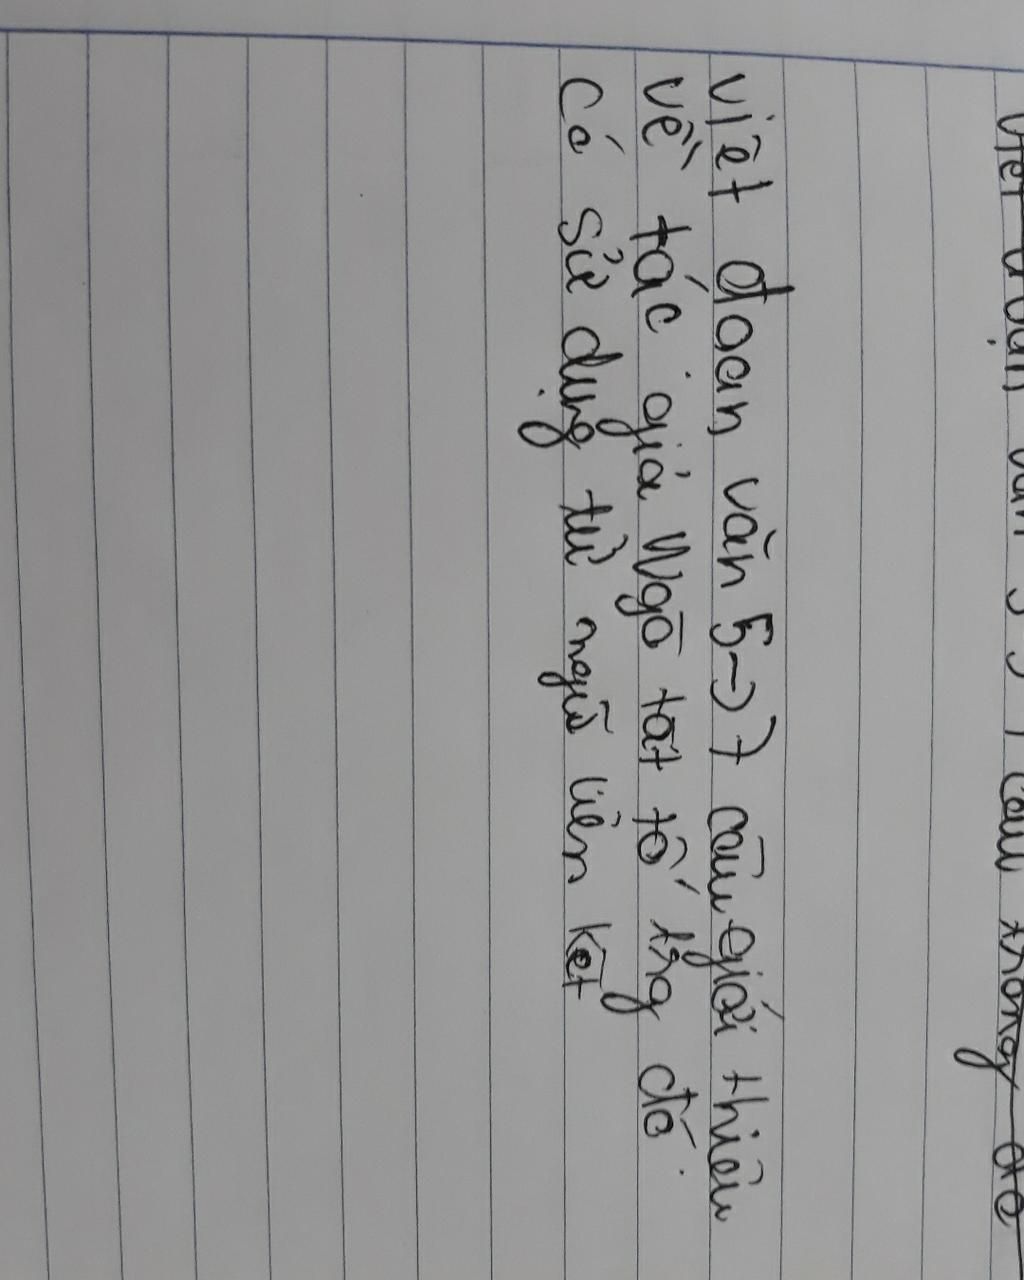 viết đoạn văn 5 → 7 câu giới thiệu
về tác giả Ngô tất tố trg đó
có sử dụng từ ngữ liên kết